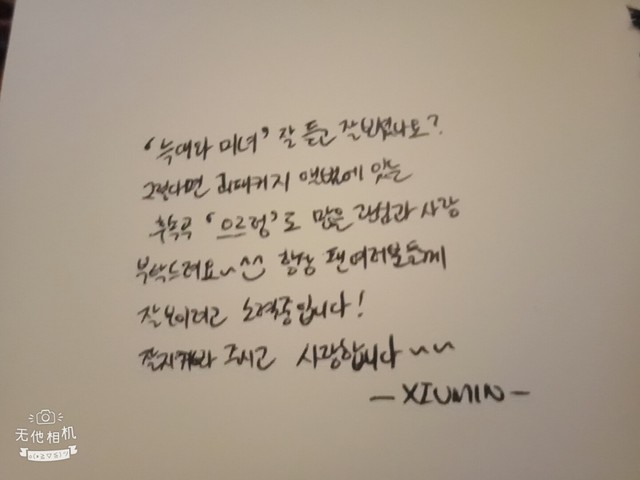 '늑대와 미녀' 잘 듣고 잘 보셨나요?
그렇다면 리패키지 앨범에 있는
후속곡 '으르렁'도 많은 관심과 사랑
부탁드려요~^^ 항상 팬여러분들께
잘 보이려고 노력중입니다!
잘 지켜봐 주시고 사랑합니다~~
- XIUMIN -
无他相机